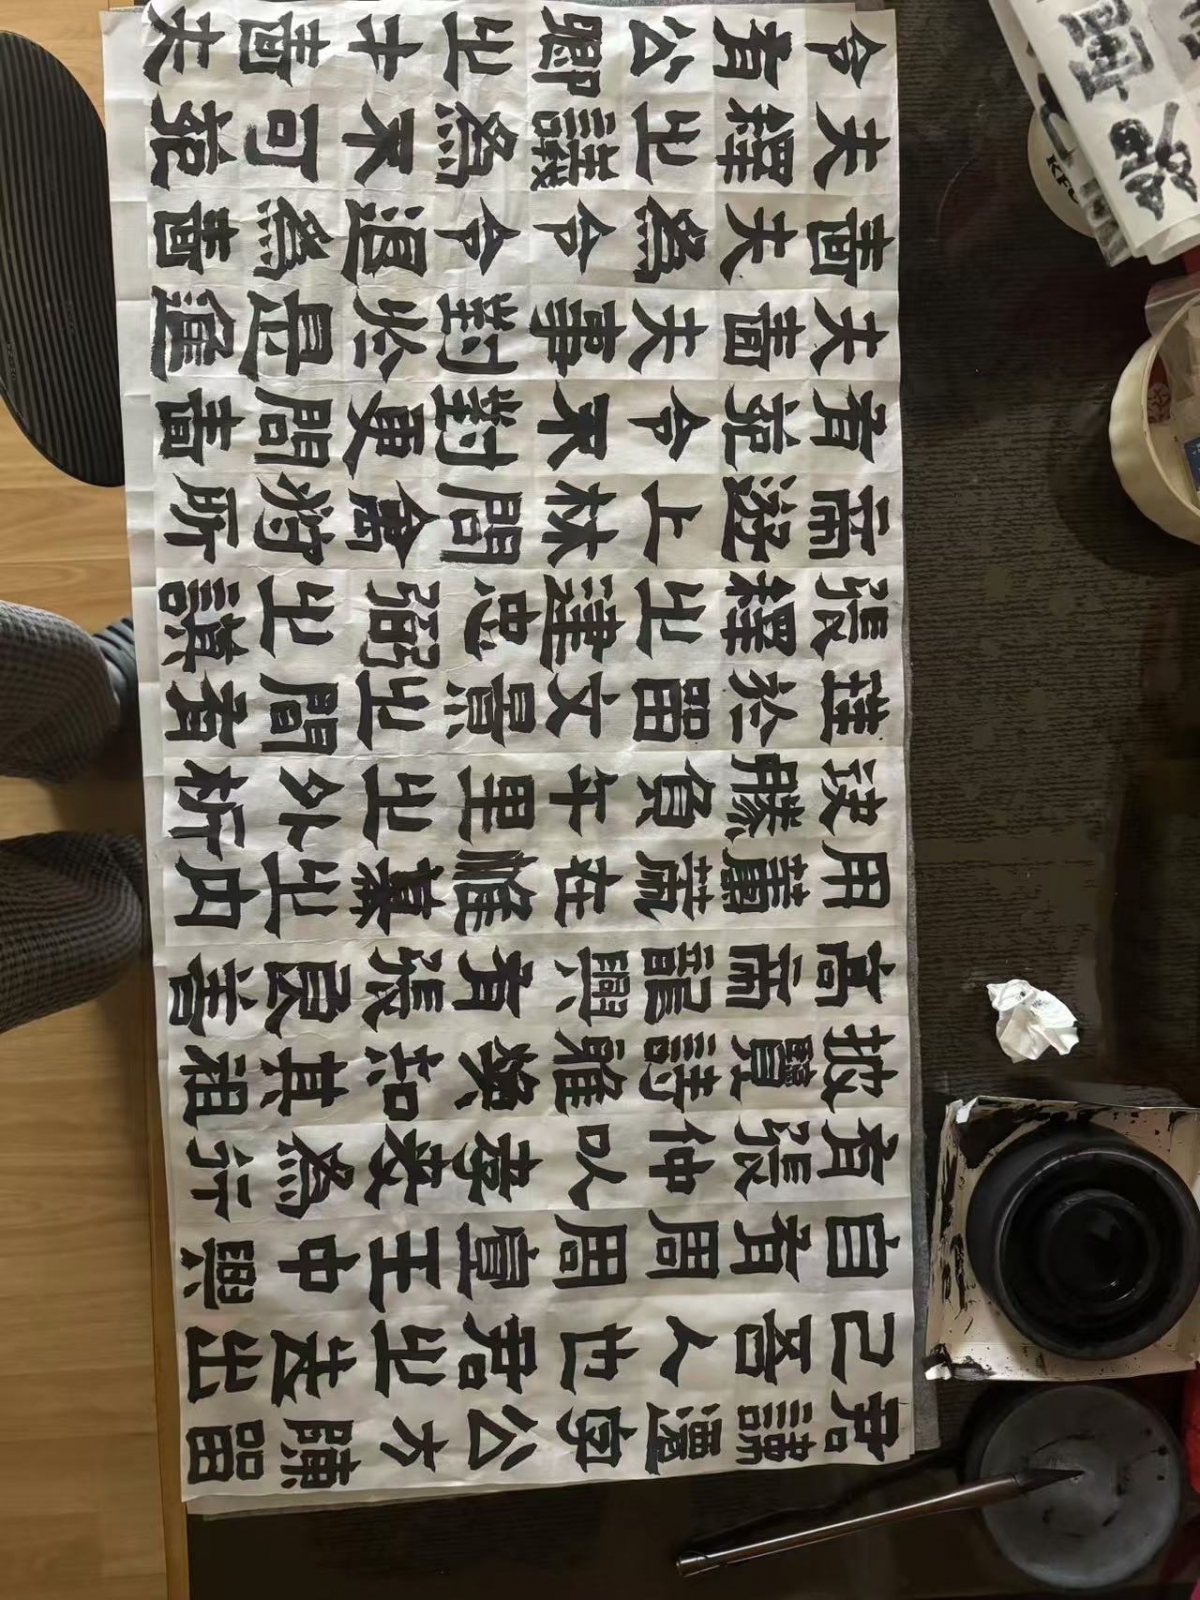 君諱遷字公方陳留
己吾人也君之先出
自有周周宣王中興
有張仲以孝友為行
披覽詩雅煥知其祖
高帝龍興有張良善
用籌策在帷幕之內
決勝負千里之外析
珪於留文景之間有
張釋之建忠弼之謨
帝遊上林問禽狩所
有苑令不對更問嗇
夫嗇夫事對於是進
嗇夫為令令退為嗇
夫釋之議為不可苑
令有公卿之才嗇夫
KFC